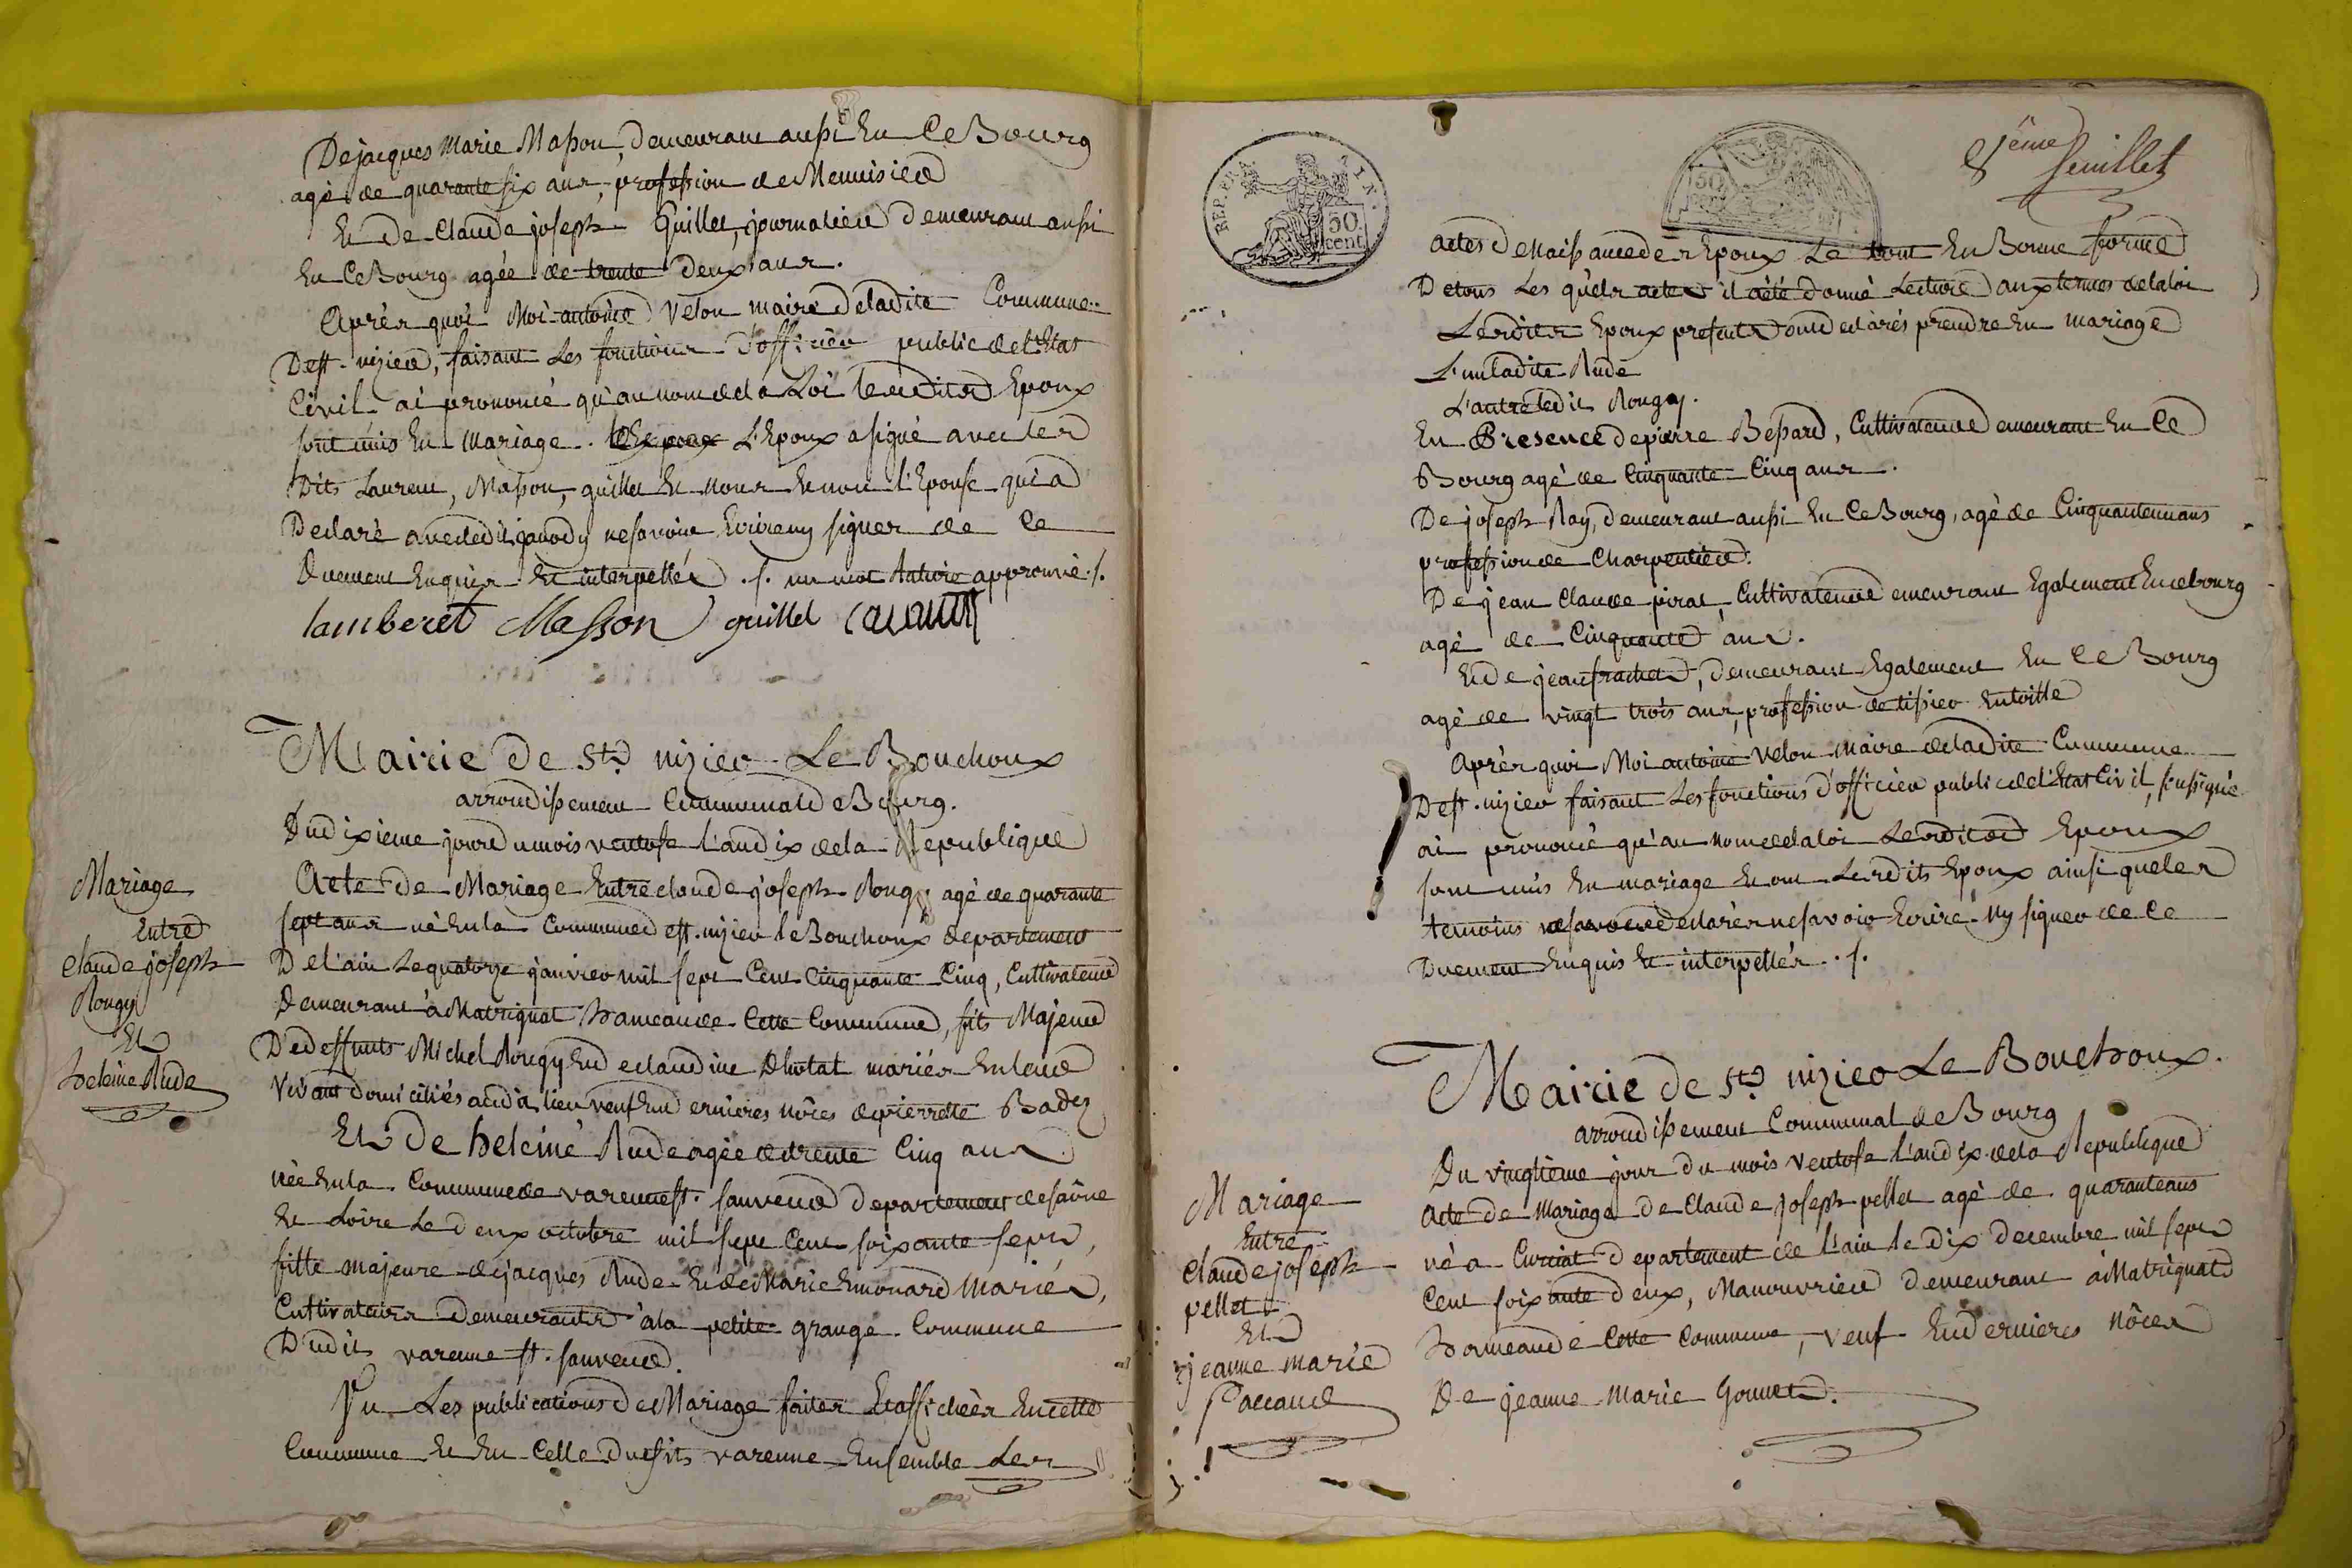 De jacques Marie Masson, demeurant aussi En Ce Bourg
agé de quarante six ans, profession de Menuisier
Et de Claude joseph Guillet, journalier demeurant aussi
En Ce Bourg agée de trente deux ans.
Après quoi Moi antoine Velon maire de ladite Commune
De st. nizier, faisant Les fonctions d'officier public de l'Etat
Civil ai prononcé qu'au nom de la Loi Lesdits Epoux
sont unis En Mariage. L'Epoux a signé avec les
Dits Laurent, Masson, guillet Et nous Et non l'Epouse qui a
Declaré avec ledit janody ne savoir Ecrire ny signer de Ce
Duement Enquis Et interpellés ./. un mot rature approuvé ./.
lamberet Masson guillet

Mairie de St. nizier Le Bouchoux
arrondissement Communal de Bourg.
Du dixieme jour du mois ventose l'an dix de la Republique
Mariage
Entre
claude joseph
Rougy
Et
heleine Rude
Acte de Mariage Entre claude joseph Rougy agé de quarante
sept ans né En la Commune de st. nizier le Bouchoux departement
De l'ain Le quatorze janvier mil sept Cent Cinquante Cinq, Cultivateur
Demeurant à Matrignat hameau de Cette Commune, fils Majeur
De deffunts Michel Rougy Et de claudine Chotat mariés En leur
Vivant domiciliés audit lieu veuf En dernieres nôces de pierrette Badez
Et De heleine Rude agée de trente Cinq ans
née En la Commune de varenne st. sauveur departement de saône
Et Loire Le deux octobre mil sept Cent soixante sept,
fille majeure de jacques Rude Et de Marie Emonard Mariés,
Cultivateurs Demeurants à la petite grange Commune
Dudit varenne st. sauveur.
Vu Les publications de Mariage faites Et affichées En cette
Commune Et En Celle dudits varenne Ensemble Les

REP. FRA.
TIN.
50
cent
50
8ème
feuillet
actes de Naissance des Epoux Le tout En Bonne forme
De tous Les quels actes il a été donné Lecture aux termes de la loi
Lesdits Epoux presents ont declarés prendre En mariage
L'un ladite Rude
L'autre ledit Rougy.
En Presence de pierre Bessard, Cultivateur demeurant En Ce
Bourg agé de Cinquante Cinq ans.
De joseph Ray, demeurant aussi En Ce Bourg, agé de Cinquante un ans
profession de Charpentier.
De jean Claude pirat, Cultivateur demeurant Egalement En ce bourg
agé de Cinquante ans.
Et de jean frachet, demeurant Egalement En Ce Bourg
agé de vingt trois ans, profession de tissier En toille
Après quoi Moi antoine Velon maire de ladite Commune
De st. nizier faisant Les fonctions d'officier public de l'Etat Civil, soussigné
ai prononcé qu'au nom de la loi Lesdits Epoux
sont unis En mariage Et ont Lesdits Epoux ainsi que les
temoins declarés ne savoir Ecrire Ny signer de Ce
Duement Enquis Et interpellés ./.

Mairie de St. nizier Le Bouchoux.
arrondissement Communal de Bourg
Du vingtieme jour du mois Ventose l'an dix de la Republique
Mariage
Entre
Claude joseph
pellet
Et
jeanne marie
Paccaud
Acte de Mariage De Claude joseph pellet agé de quarante ans
né a Curciat departement de l'ain le Dix decembre mil sept
Cent soixante deux, Manouvrier demeurant à Matrignat
hameau de Cette Commune, Veuf En dernieres Nôces
De jeanne Marie Gonnet.